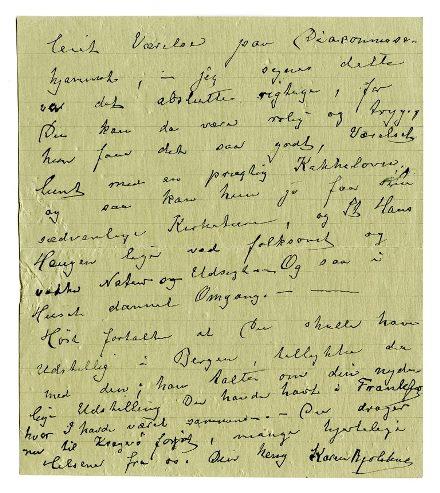 lenit Værelse paa Diakonisse-
hjemmet, – jeg synes dette
var det absolutte rigtige, for
Du kan da være rolig og tryg,
hun faar det saa godt, Værelset
lunt med en prægtig Kakkelovn,
og saa kan hun jo faa sine
sædvanlige Kirketure, og St Hans
Haugen lige ved folksomt og
vakker Natur og Udsigten. Og saa i
Huset dannet Omgang. –
Høst fortalt at Du skulle have
Udstilling i Bergen, tillykke da
med den; han talte om din nyde-
lige Udstilling Du havde havt i Frankfo
hvor I havde været sammen. – Du drager
nu til Kragerø forfot, mange hjertelige
Hilsener fra os. Din heng Karen Bjølstad